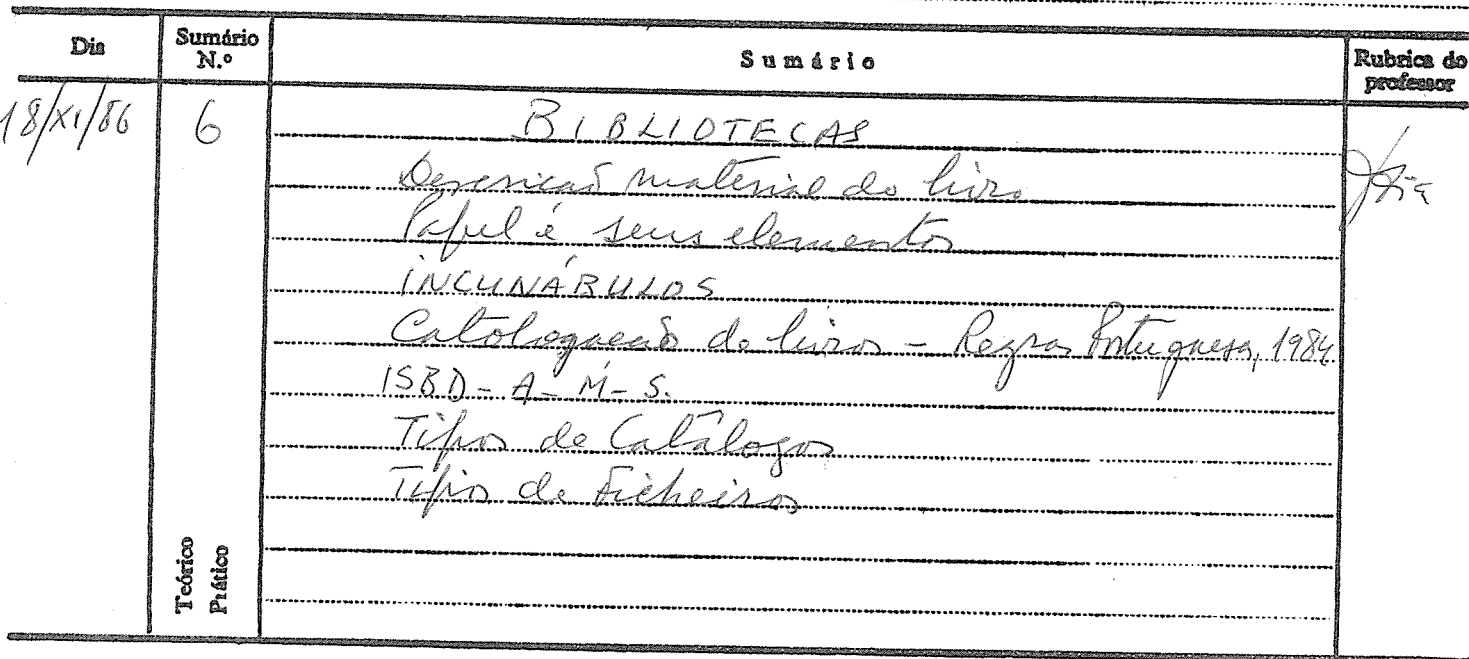 Dia Sumário N.º Sumário Rubrica do professor
18/XI/86 6 BIBLIOTECAS
Descrição material do livro
Papel e seus elementos
INCUNÁBULOS
Catalogação de livros - Regras Portuguesas, 1984
ISBD - A - M - S.
Tipos de Catálogos
Tipos de Ficheiros
Teórico
Prático